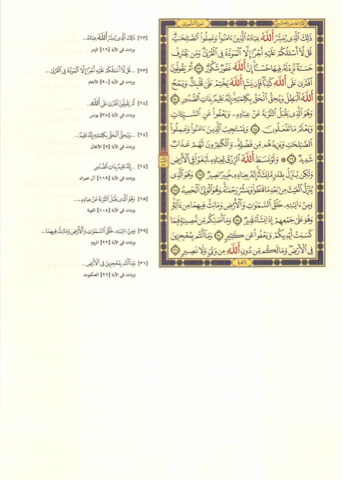 ذَٰلِكَ ٱلَّذِى يُبَشِّرُ ٱللَّهُ عِبَادَهُ ٱلَّذِينَ ءَامَنُوا۟ وَعَمِلُوا۟ ٱلصَّٰلِحَٰتِ
قُل لَّآ أَسْـَٔلُكُمْ عَلَيْهِ أَجْرًا إِلَّا ٱلْمَوَدَّةَ فِى ٱلْقُرْبَىٰ وَمَن يَقْتَرِفْ
حَسَنَةً نَّزِدْ لَهُۥ فِيهَا حُسْنًا إِنَّ ٱللَّهَ غَفُورٌ شَكُورٌ ٢٣ أَمْ يَقُولُونَ
ٱفْتَرَىٰ عَلَى ٱللَّهِ كَذِبًا فَإِن يَشَإِ ٱللَّهُ يَخْتِمْ عَلَىٰ قَلْبِكَ وَيَمْحُ
ٱللَّهُ ٱلْبَٰطِلَ وَيُحِقُّ ٱلْحَقَّ بِكَلِمَٰتِهِۦٓ إِنَّهُۥ عَلِيمٌۢ بِذَاتِ ٱلصُّدُورِ ٢٤
وَهُوَ ٱلَّذِى يَقْبَلُ ٱلتَّوْبَةَ عَنْ عِبَادِهِۦ وَيَعْفُوا۟ عَنِ ٱلسَّيِّـَٔاتِ
وَيَعْلَمُ مَا تَفْعَلُونَ ٢٥ وَيَسْتَجِيبُ ٱلَّذِينَ ءَامَنُوا۟ وَعَمِلُوا۟
ٱلصَّٰلِحَٰتِ وَيَزِيدُهُم مِّن فَضْلِهِۦ وَٱلْكَٰفِرُونَ لَهُمْ عَذَابٌ
شَدِيدٌ ٢٦ وَلَوْ بَسَطَ ٱللَّهُ ٱلرِّزْقَ لِعِبَادِهِۦ لَبَغَوْا۟ فِى ٱلْأَرْضِ
وَلَٰكِن يُنَزِّلُ بِقَدَرٍ مَّا يَشَآءُ إِنَّهُۥ بِعِبَادِهِۦ خَبِيرٌۢ بَصِيرٌ ٢٧ وَهُوَ ٱلَّذِى
يُنَزِّلُ ٱلْغَيْثَ مِنۢ بَعْدِ مَا قَنَطُوا۟ وَيَنشُرُ رَحْمَتَهُۥ وَهُوَ ٱلْوَلِىُّ ٱلْحَمِيدُ ٢٨
وَمِنْ ءَايَٰتِهِۦ خَلْقُ ٱلسَّمَٰوَٰتِ وَٱلْأَرْضِ وَمَا بَثَّ فِيهِمَا مِن دَآبَّةٍ
وَهُوَ عَلَىٰ جَمْعِهِمْ إِذَا يَشَآءُ قَدِيرٌ ٢٩ وَمَآ أَصَٰبَكُم مِّن مُّصِيبَةٍ فَبِمَا
كَسَبَتْ أَيْدِيكُمْ وَيَعْفُوا۟ عَن كَثِيرٍ ٣٠ وَمَآ أَنتُم بِمُعْجِزِينَ
فِى ٱلْأَرْضِ وَمَا لَكُم مِّن دُونِ ٱللَّهِ مِن وَلِىٍّ وَلَا نَصِيرٍ ٣١
٤٨٦
[٢٣] ذَٰلِكَ ٱلَّذِى يُبَشِّرُ ٱللَّهُ عِبَادَهُ...
[٢٣] ...قُل لَّآ أَسْـَٔلُكُمْ عَلَيْهِ أَجْرًا إِلَّا ٱلْمَوَدَّةَ فِى ٱلْقُرْبَىٰ...
وردت في الآية [٩٠] الأنعام
[٢٤] أَمْ يَقُولُونَ ٱفْتَرَىٰ عَلَى ٱللَّهِ...
وردت في الآية [٣٨] يونس
[٢٤] ...وَيُحِقُّ ٱلْحَقَّ بِكَلِمَٰتِهِۦٓ إِنَّهُۥ عَلِيمٌ...
وردت في الآية [٧] الأنفال
[٢٤] ...إِنَّهُۥ عَلِيمٌۢ بِذَاتِ ٱلصُّدُورِ
وردت في الآية [١١٩] آل عمران
[٢٥] وَهُوَ ٱلَّذِى يَقْبَلُ ٱلتَّوْبَةَ عَنْ عِبَادِهِۦ...
وردت في الآية [١٠٤] التوبة
[٢٩] وَمِنْ ءَايَٰتِهِۦ خَلْقُ ٱلسَّمَٰوَٰتِ وَٱلْأَرْضِ وَمَا بَثَّ فِيهِمَا...
وردت في الآية [٢٢] الروم
[٣١] وَمَآ أَنتُم بِمُعْجِزِينَ فِى ٱلْأَرْضِ...
وردت في الآية [٢٢] العنكبوت